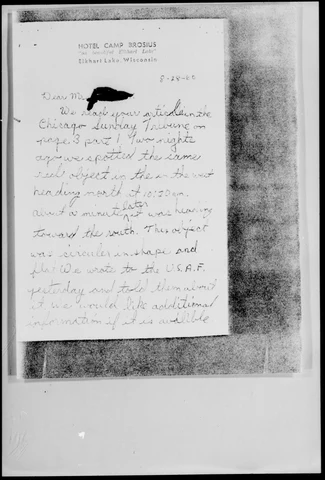 HOTEL CAMP BROSIUS
"On Beautiful Elkhart Lake"
Elkhart Lake, Wisconsin
8-28-60
Dear Mr.
We read your article in the
Chicago Sunday Tribune on
page 3 part 1. Two nights
ago we spotted the same
red object in the in the west
heading north at 10:30 pm.
about a minute later it was heading
toward the south. This object
was circular in shape and
flat. We wrote to the U.S.A.F.
yesterday and told them about
it we would like additional
information if it is availble